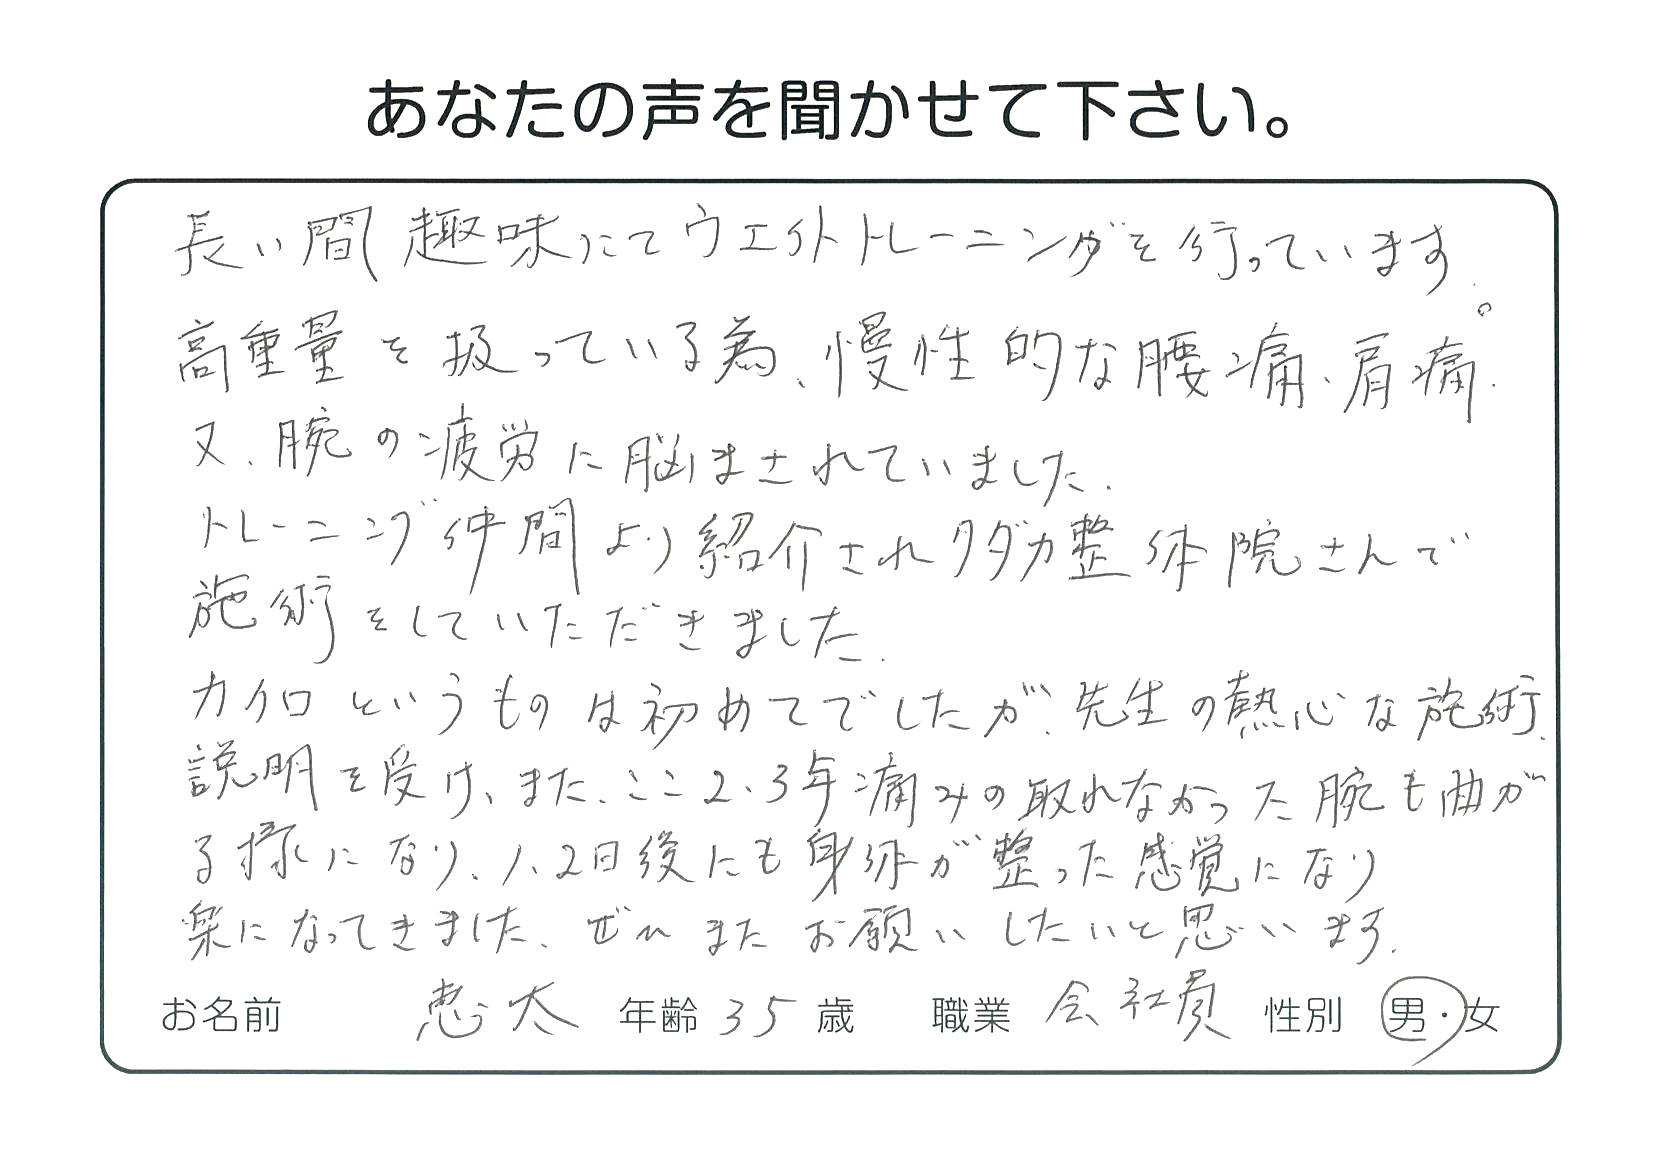 あなたの声を聞かせて下さい。
長い間趣味にてウエイトトレーニングを行っています。
高重量を扱っている為、慢性的な腰痛、肩痛、
又、腕の疲労に脳まされていました。
トレーニング仲間より紹介されクダカ整体院さんで
施術をしていただきました。
カイロというものは初めてでしたが、先生の熱心な施術、
説明を受け、また、ここ2、3年痛みの取れなかった腕も曲が
る様になり、1、2日後にも身体が整った感覚になり
楽になってきました、ぜひまたお願いしたいと思います。
お名前 恵太 年齢 35 歳 職業 会社員 性別 男・女